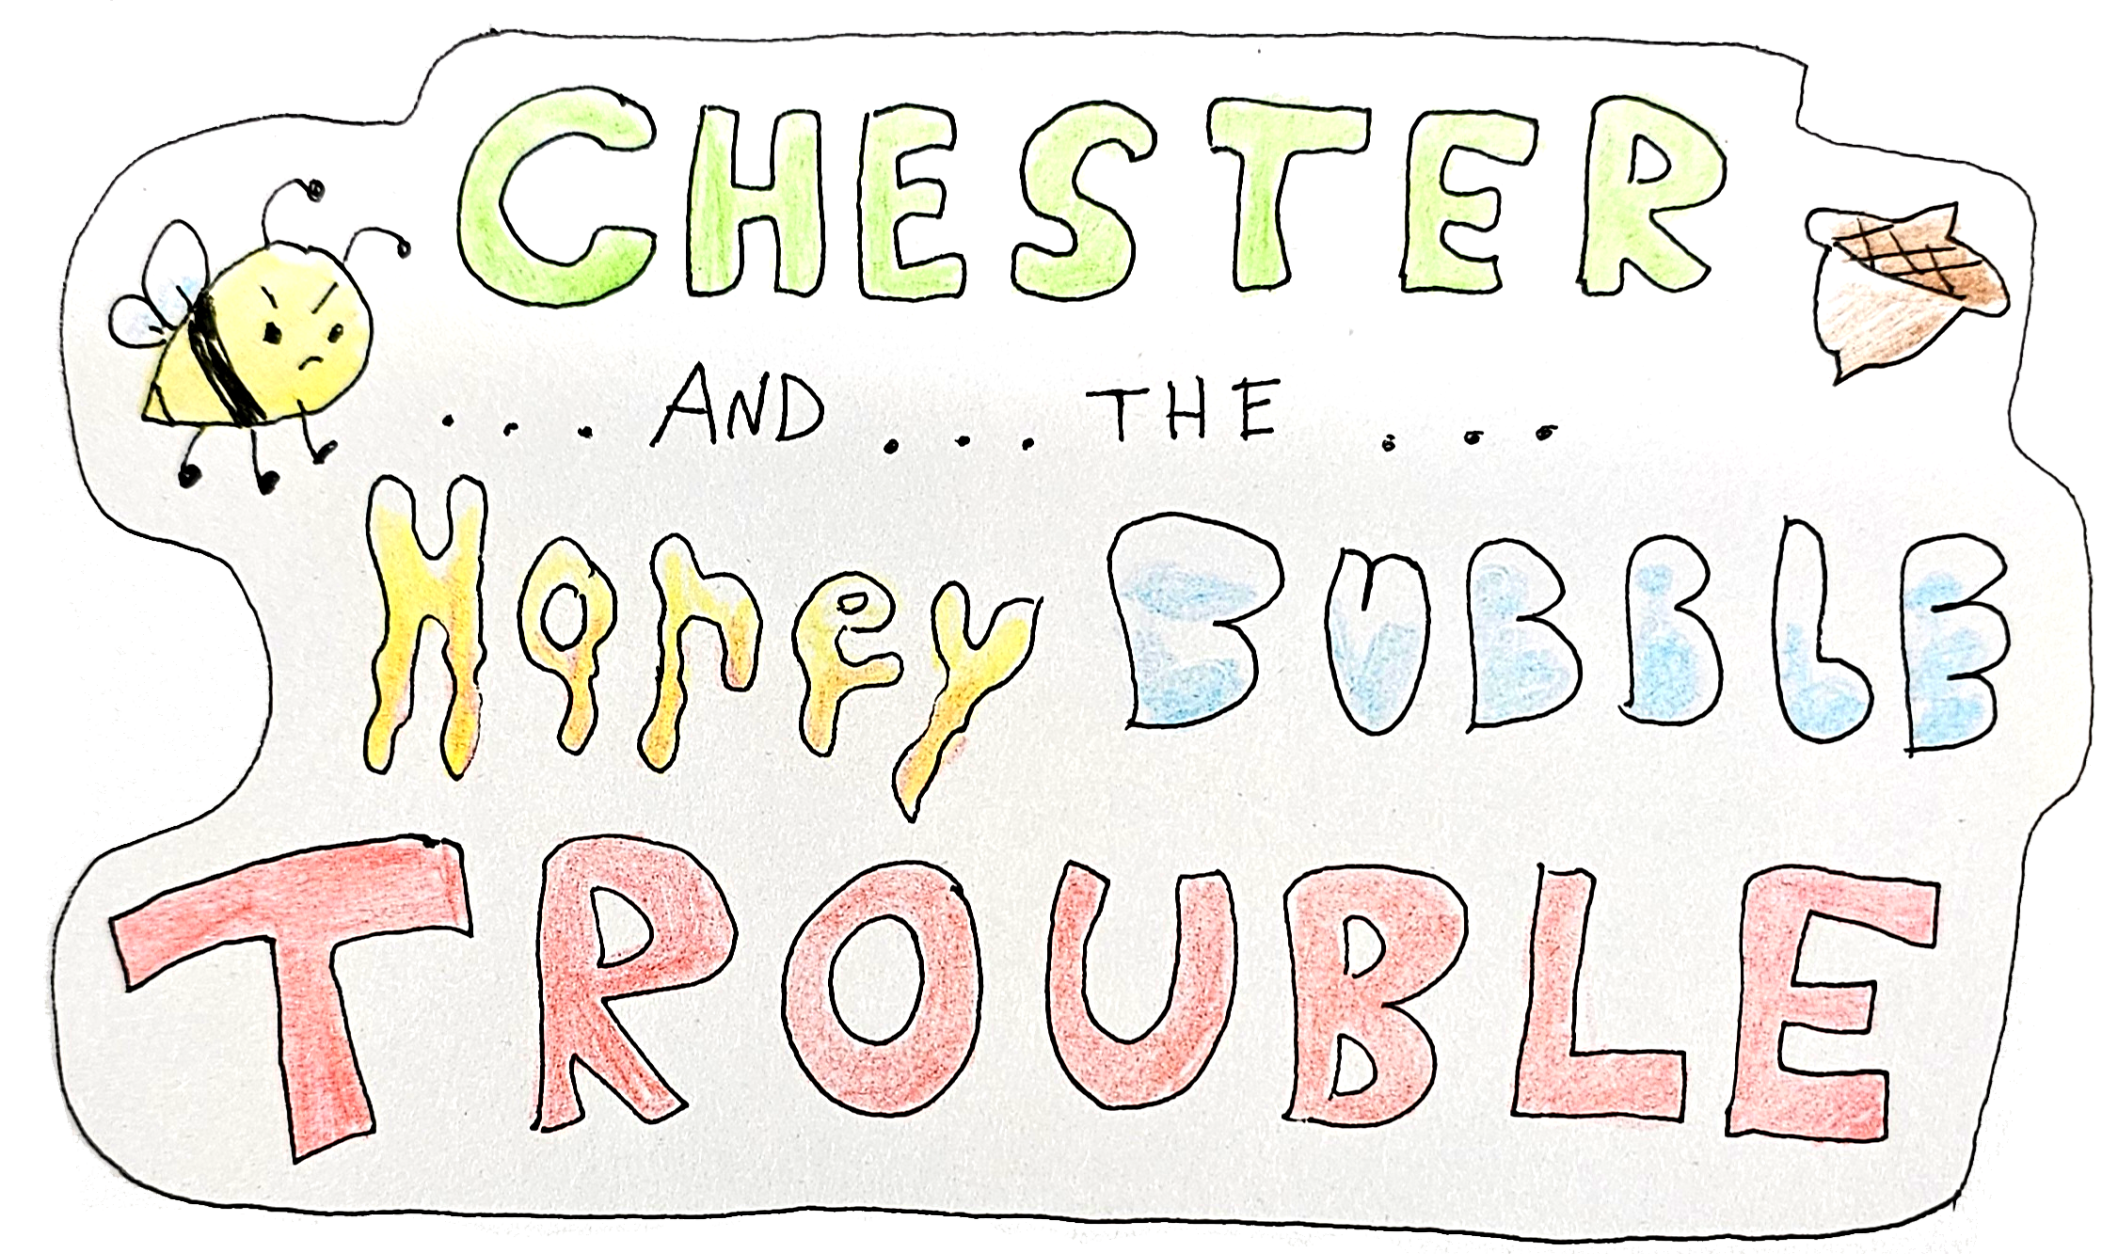 CHESTER
... AND ... THE ...
Honey BUBBLE
TROUBLE